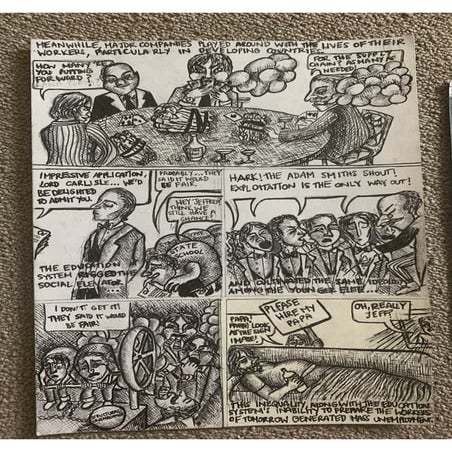 MEANWHILE, MAJOR COMPANIES PLAYED AROUND WITH THE LIVES OF THEIR
WORKERS, PARTICULARLY IN DEVELOPING COUNTRIES
HOW MANY 'RE
YOU PUTTING
FORWARD?
FOR THE SUPPLY
CHAIN? AS MANY AS
NEEDED!
IMPRESSIVE APPLICATION,
LORD CARLISLE... WE'D
BE DELIGHTED
TO ADMIT YOU
PROBABLY... THEY
SAID IT WOULD
BE FAIR
HEY JEFFREY
THINK WE
STILL HAVE A
CHANCE
STATE
SCHOOL
THE EDUCATION
SYSTEM RIGGED THE
SOCIAL ELEVATOR
HARK! THE ADAM SMITHS SHOUT!
EXPLOITATION IS THE ONLY WAY OUT!
AND CULTIVATED THE SAME
AMONG THE YOUNGER ELITE...
I DON'T GET IT!
THEY SAID IT WOULD
BE FAIR!
PAPA!
LOOK
PLEASE
HIRE MY
PAPA
OH, REALLY
JEFF?
THIS INEQUALITY, ALONG WITH THE EDUCATION
SYSTEM'S INABILITY TO PREPARE THE WORKERS
OF TOMORROW GENERATED MASS UNEMPLOYMENT